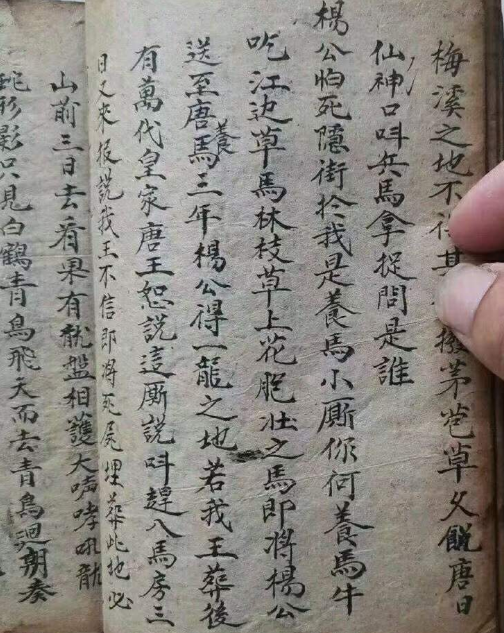 梅溪之地不 其 撥茅苞草又餓唐日
仙神口呌兵馬拿捉問是誰
楊公怕死隱街於我是養馬小厮你何養馬牛
吃江边草馬林枝草上花肥壮之馬即將楊公
送至唐養馬三年楊公得一龍之地若我王葬後
有萬代皇家唐王恕說這厮說呌趕八馬房三
日又來报說我王不信即將死尾埋葬此地必
山前三日去看果有龍盤相護大吽哮吼龍
蛇形影只見白鶴青鳥飛天而去青鳥廻朝奏